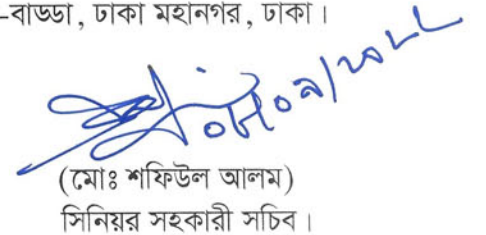 -বাড্ডা, ঢাকা মহানগর, ঢাকা।
(মোঃ শফিউল আলম)
সিনিয়র সহকারী সচিব।